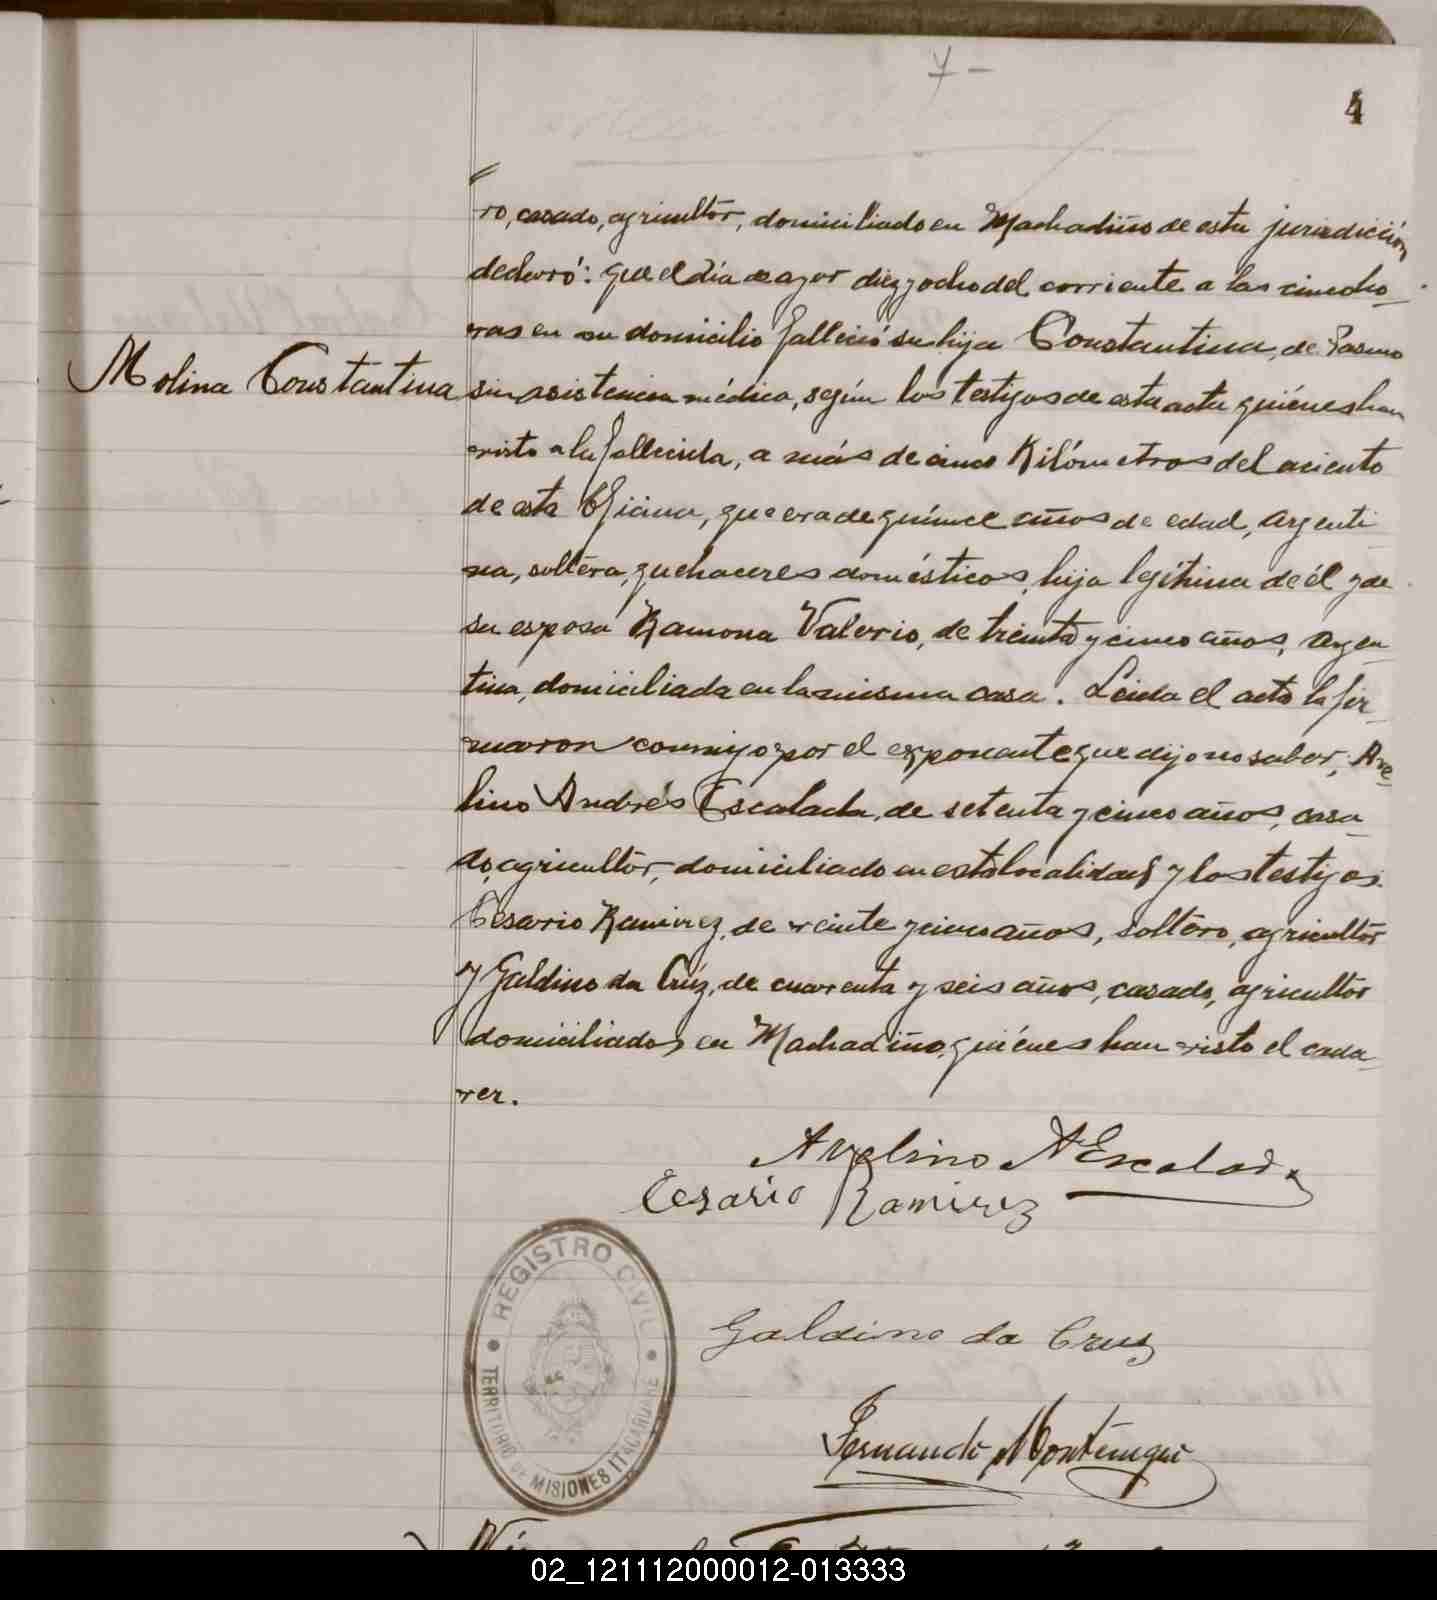 7-
4
ro, casado, agricultor, domiciliado en Machadiño de esta jurisdicción
declaró: que el día de ayer diez y ocho del corriente a las cinco ho-
ras en su domicilio falleció su hija Constantina, de Pasmo
Molina Constantina
sin asistencia médica, según los testigos de esta acta quiénes han
visto a la fallecida, a más de cinco Kilómetros del aciento
de esta Oficina, que era de quince años de edad, argenti
na, soltera, quehaceres domésticos, hija legítima de él y de
su esposa Ramona Valerio, de treinta y cinco años, argen-
tina, domiciliada en la misma casa. Leida el acta la fir-
maron conmigo por el exponente que dijo no saber, Ave-
lino Andrés Escalada, de setenta y cinco años, casa-
do, agricultor, domiciliado en esta localidad y los testigos.
Cesario Ramirez, de veinte y cinco años, soltero, agricultor
y Galdino da Crúz, de cuarenta y seis años, casado, agricultor
domiciliados en Machadiño, quiénes han visto el cada-
ver.
Avelino A Escalada
Cesario Ramirez
REGISTRO CIVIL
TERRITORIO DE MISIONES ITACARUARE
Galdino da Cruz
Fernando Montenegro
02_121112000012-013333